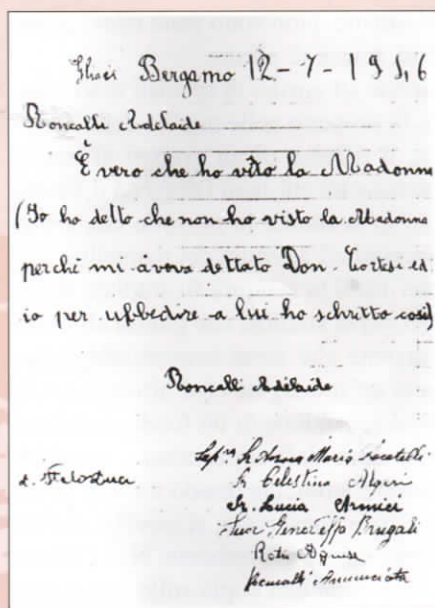 Bergamo 12-7-1946
Roncalli Adelaide
È vero che ho vito la Madonna
(Io ho detto che non ho visto la Madonna
perché mi aveva dettato Don. Cortesi ed
io per ubbedire a lui ho schritto così)
Roncalli Adelaide
Anna Maria Locatelli
Sr Celestina
Sr. Lucia
Suor Brugali
Rota
Roncalli Annunciata